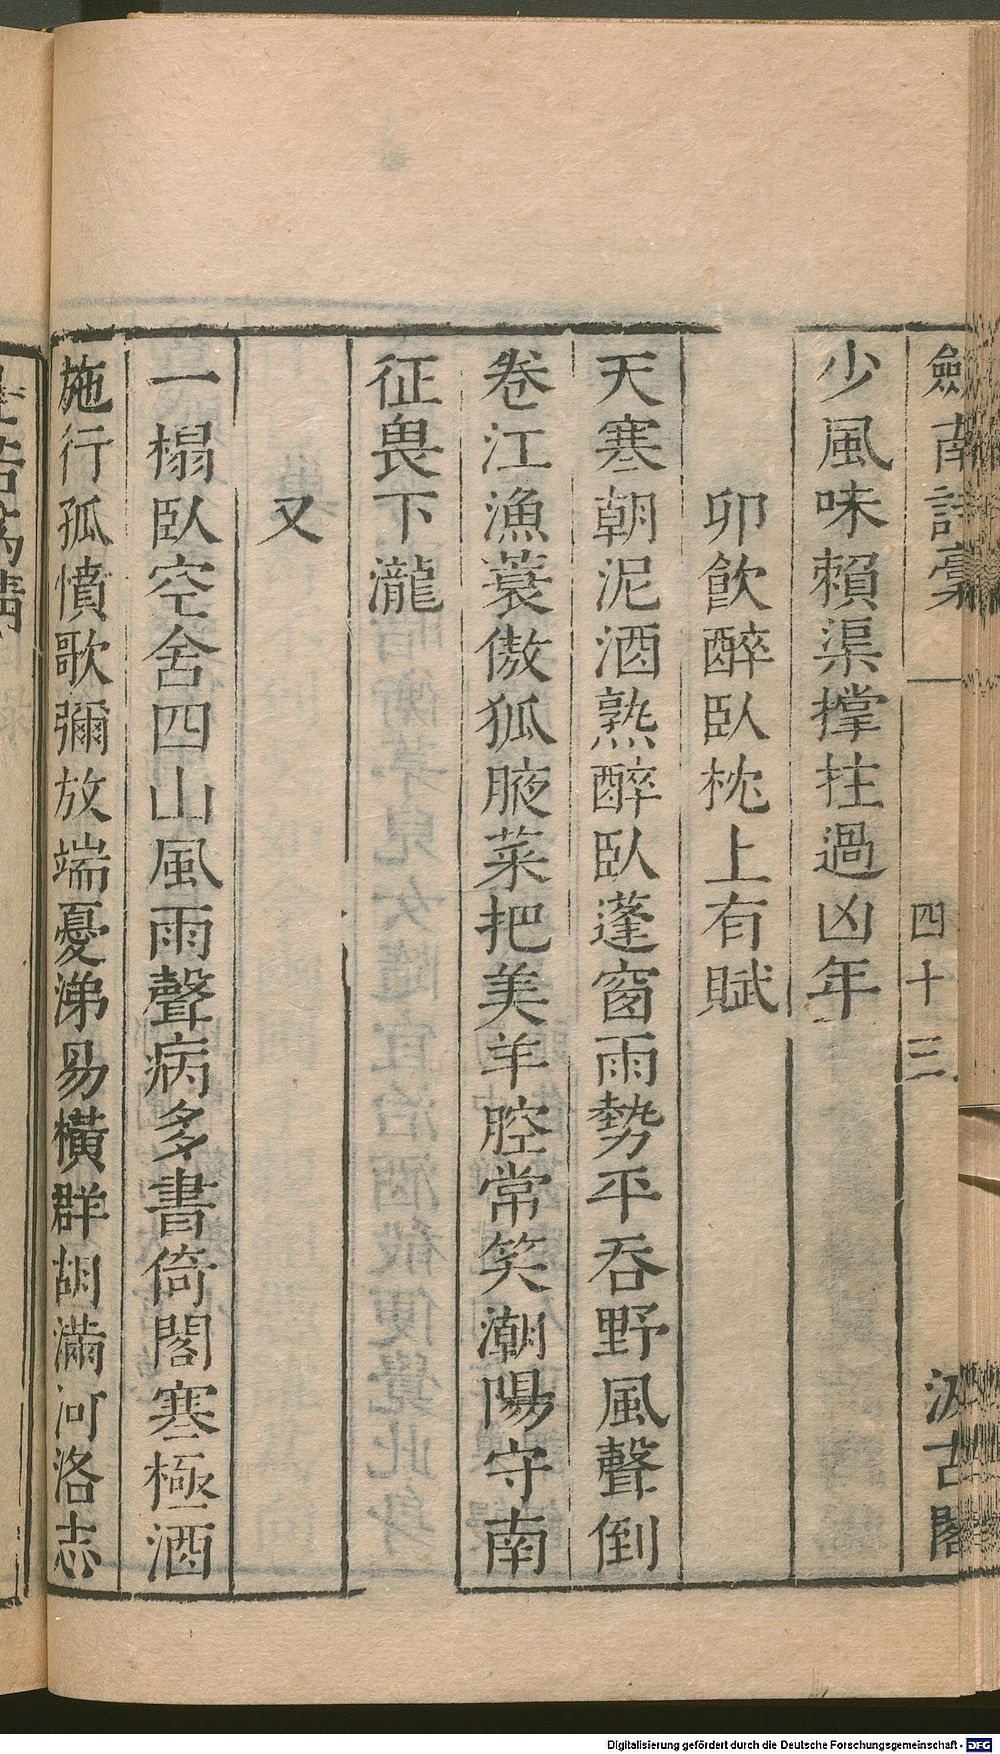 劍南詩稾 四十三 汲古閣
少風味賴渠撑拄過凶年
卯飲醉臥枕上有賦
天寒朝泥酒熟醉臥蓬窗雨勢平吞野風聲倒
卷江漁蓑傲狐腋菜把美羊腔常笑潮陽守南
征畏下瀧
又
一榻臥空舍四山風雨聲病多書倚閣寒極酒
施行孤憤歌彌放端憂涕易橫群胡滿河洛志
Digitalisierung gefördert durch die Deutsche Forschungsgemeinschaft - DFG